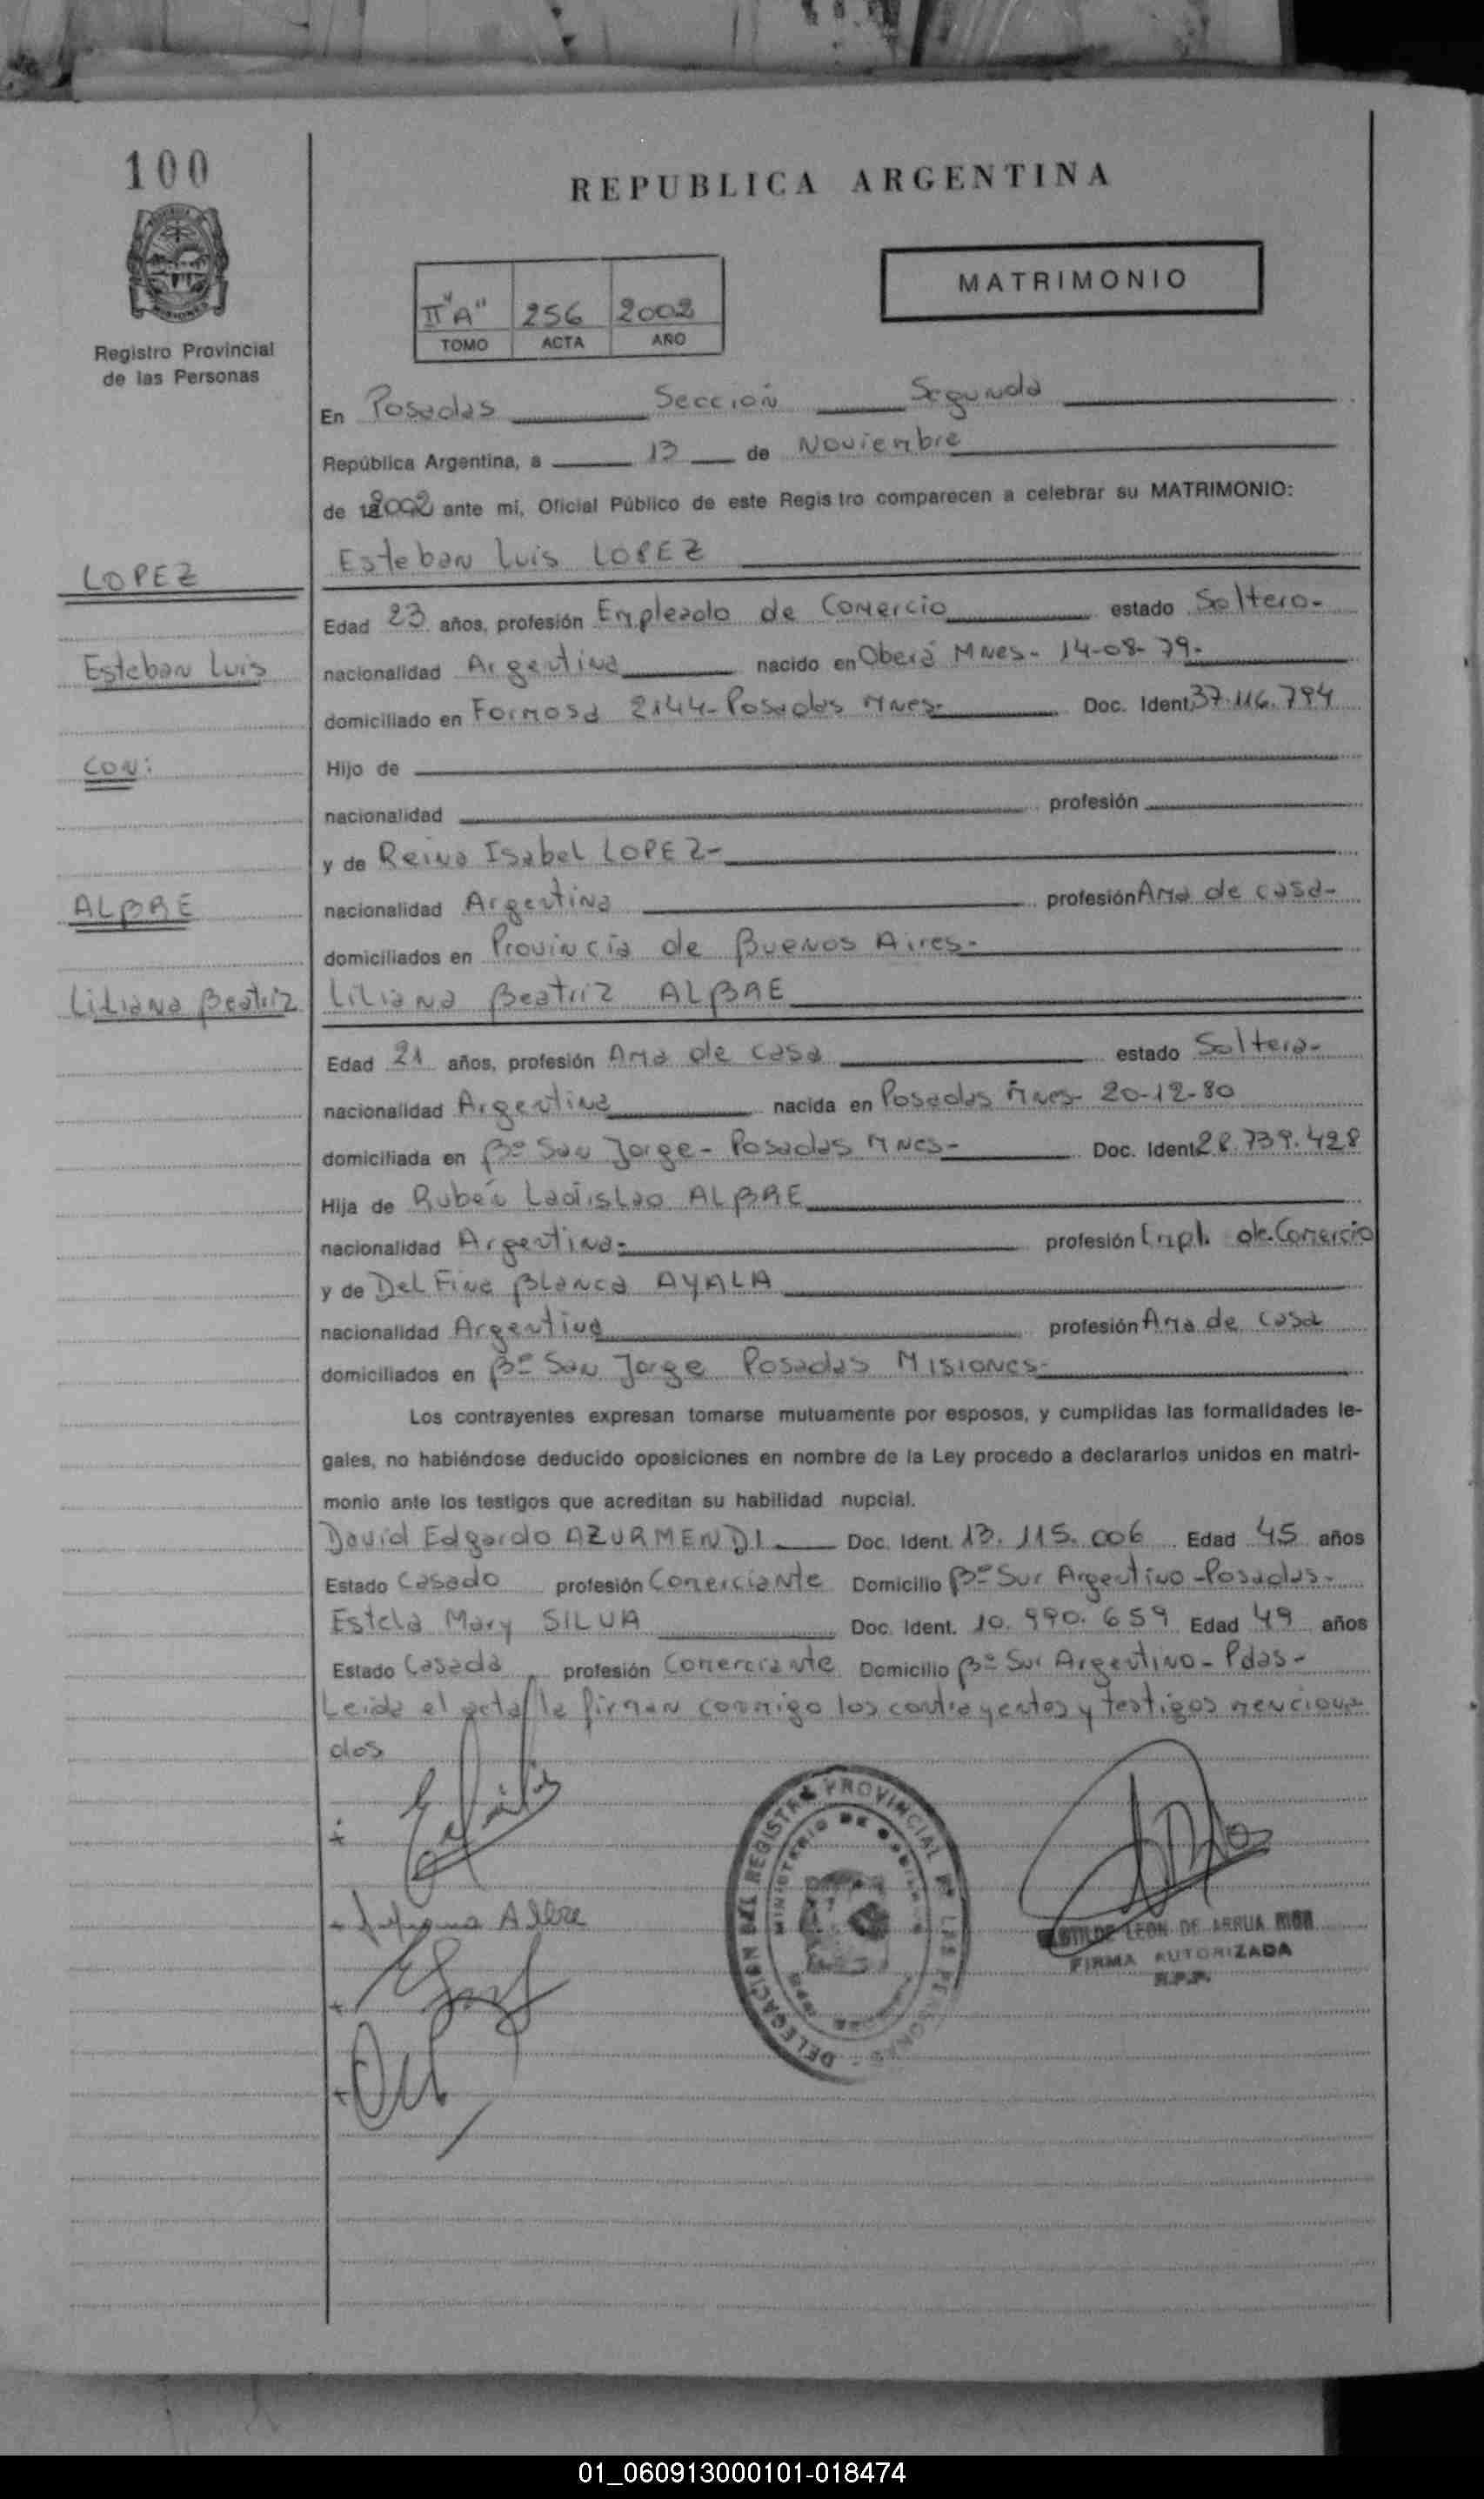 100
REPUBLICA ARGENTINA
MATRIMONIO
II "A" 256 2002
TOMO ACTA AÑO
Registro Provincial
de las Personas
En Posadas Sección Segunda
República Argentina, a 13 de Noviembre
de 2002 ante mí, Oficial Público de este Registro comparecen a celebrar su MATRIMONIO:
LOPEZ
Esteban Luis LOPEZ
Edad 23 años, profesión Empleado de Comercio estado Soltero-
Esteban Luis
nacionalidad Argentina nacido en Oberá Mnes- 14-08-79-
domiciliado en Formosa 2144-Posadas Mnes- Doc. Ident. 37.116.794
CON:
Hijo de
nacionalidad profesión
y de Reina Isabel LOPEZ-
ALBRE
nacionalidad Argentina profesión Ama de casa-
domiciliados en Provincia de Buenos Aires-
Liliana Beatriz
Liliana Beatriz ALBRE
Edad 21 años, profesión Ama de casa estado Soltera-
nacionalidad Argentina nacida en Posadas Mnes- 20-12-80
domiciliada en Bº San Jorge- Posadas Mnes- Doc. Ident. 28.739.428
Hija de Rubén Ladislao ALBRE
nacionalidad Argentina- profesión Empl. de Comercio
y de Delfina Blanca AYALA
nacionalidad Argentina profesión Ama de casa
domiciliados en Bº San Jorge Posadas Misiones-
Los contrayentes expresan tomarse mutuamente por esposos, y cumplidas las formalidades le-
gales, no habiéndose deducido oposiciones en nombre de la Ley procedo a declararlos unidos en matri-
monio ante los testigos que acreditan su habilidad nupcial.
David Edgardo AZURMENDI Doc. Ident. 13.115.006 Edad 45 años
Estado Casado profesión Comerciante Domicilio Bº Sur Argentino-Posadas-
Estela Mary SILVA Doc. Ident. 10.990.659 Edad 49 años
Estado Casada profesión Comerciante Domicilio Bº Sur Argentino- Pdas-
Leida el acta la firman conmigo los contrayentes y testigos menciona
dos
DELEGACION DEL REGISTRO PROVINCIAL DE LAS PERSONAS
MINISTERIO DE GOBIERNO
Albre
LEON DE ARRUA
FIRMA AUTORIZADA
R.P.P.
01_060913000101-018474